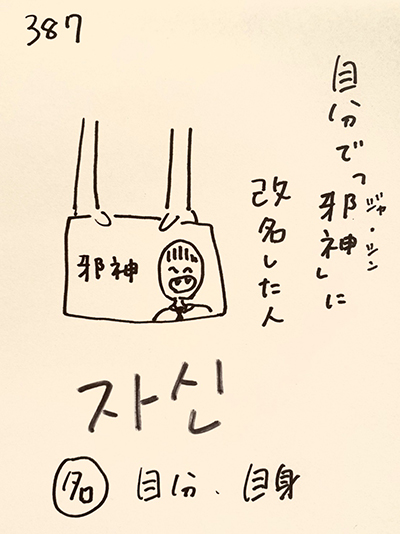 387
自分で「邪神」に
ジャ・シン
改名した人
邪神
자신
名 自分、自身